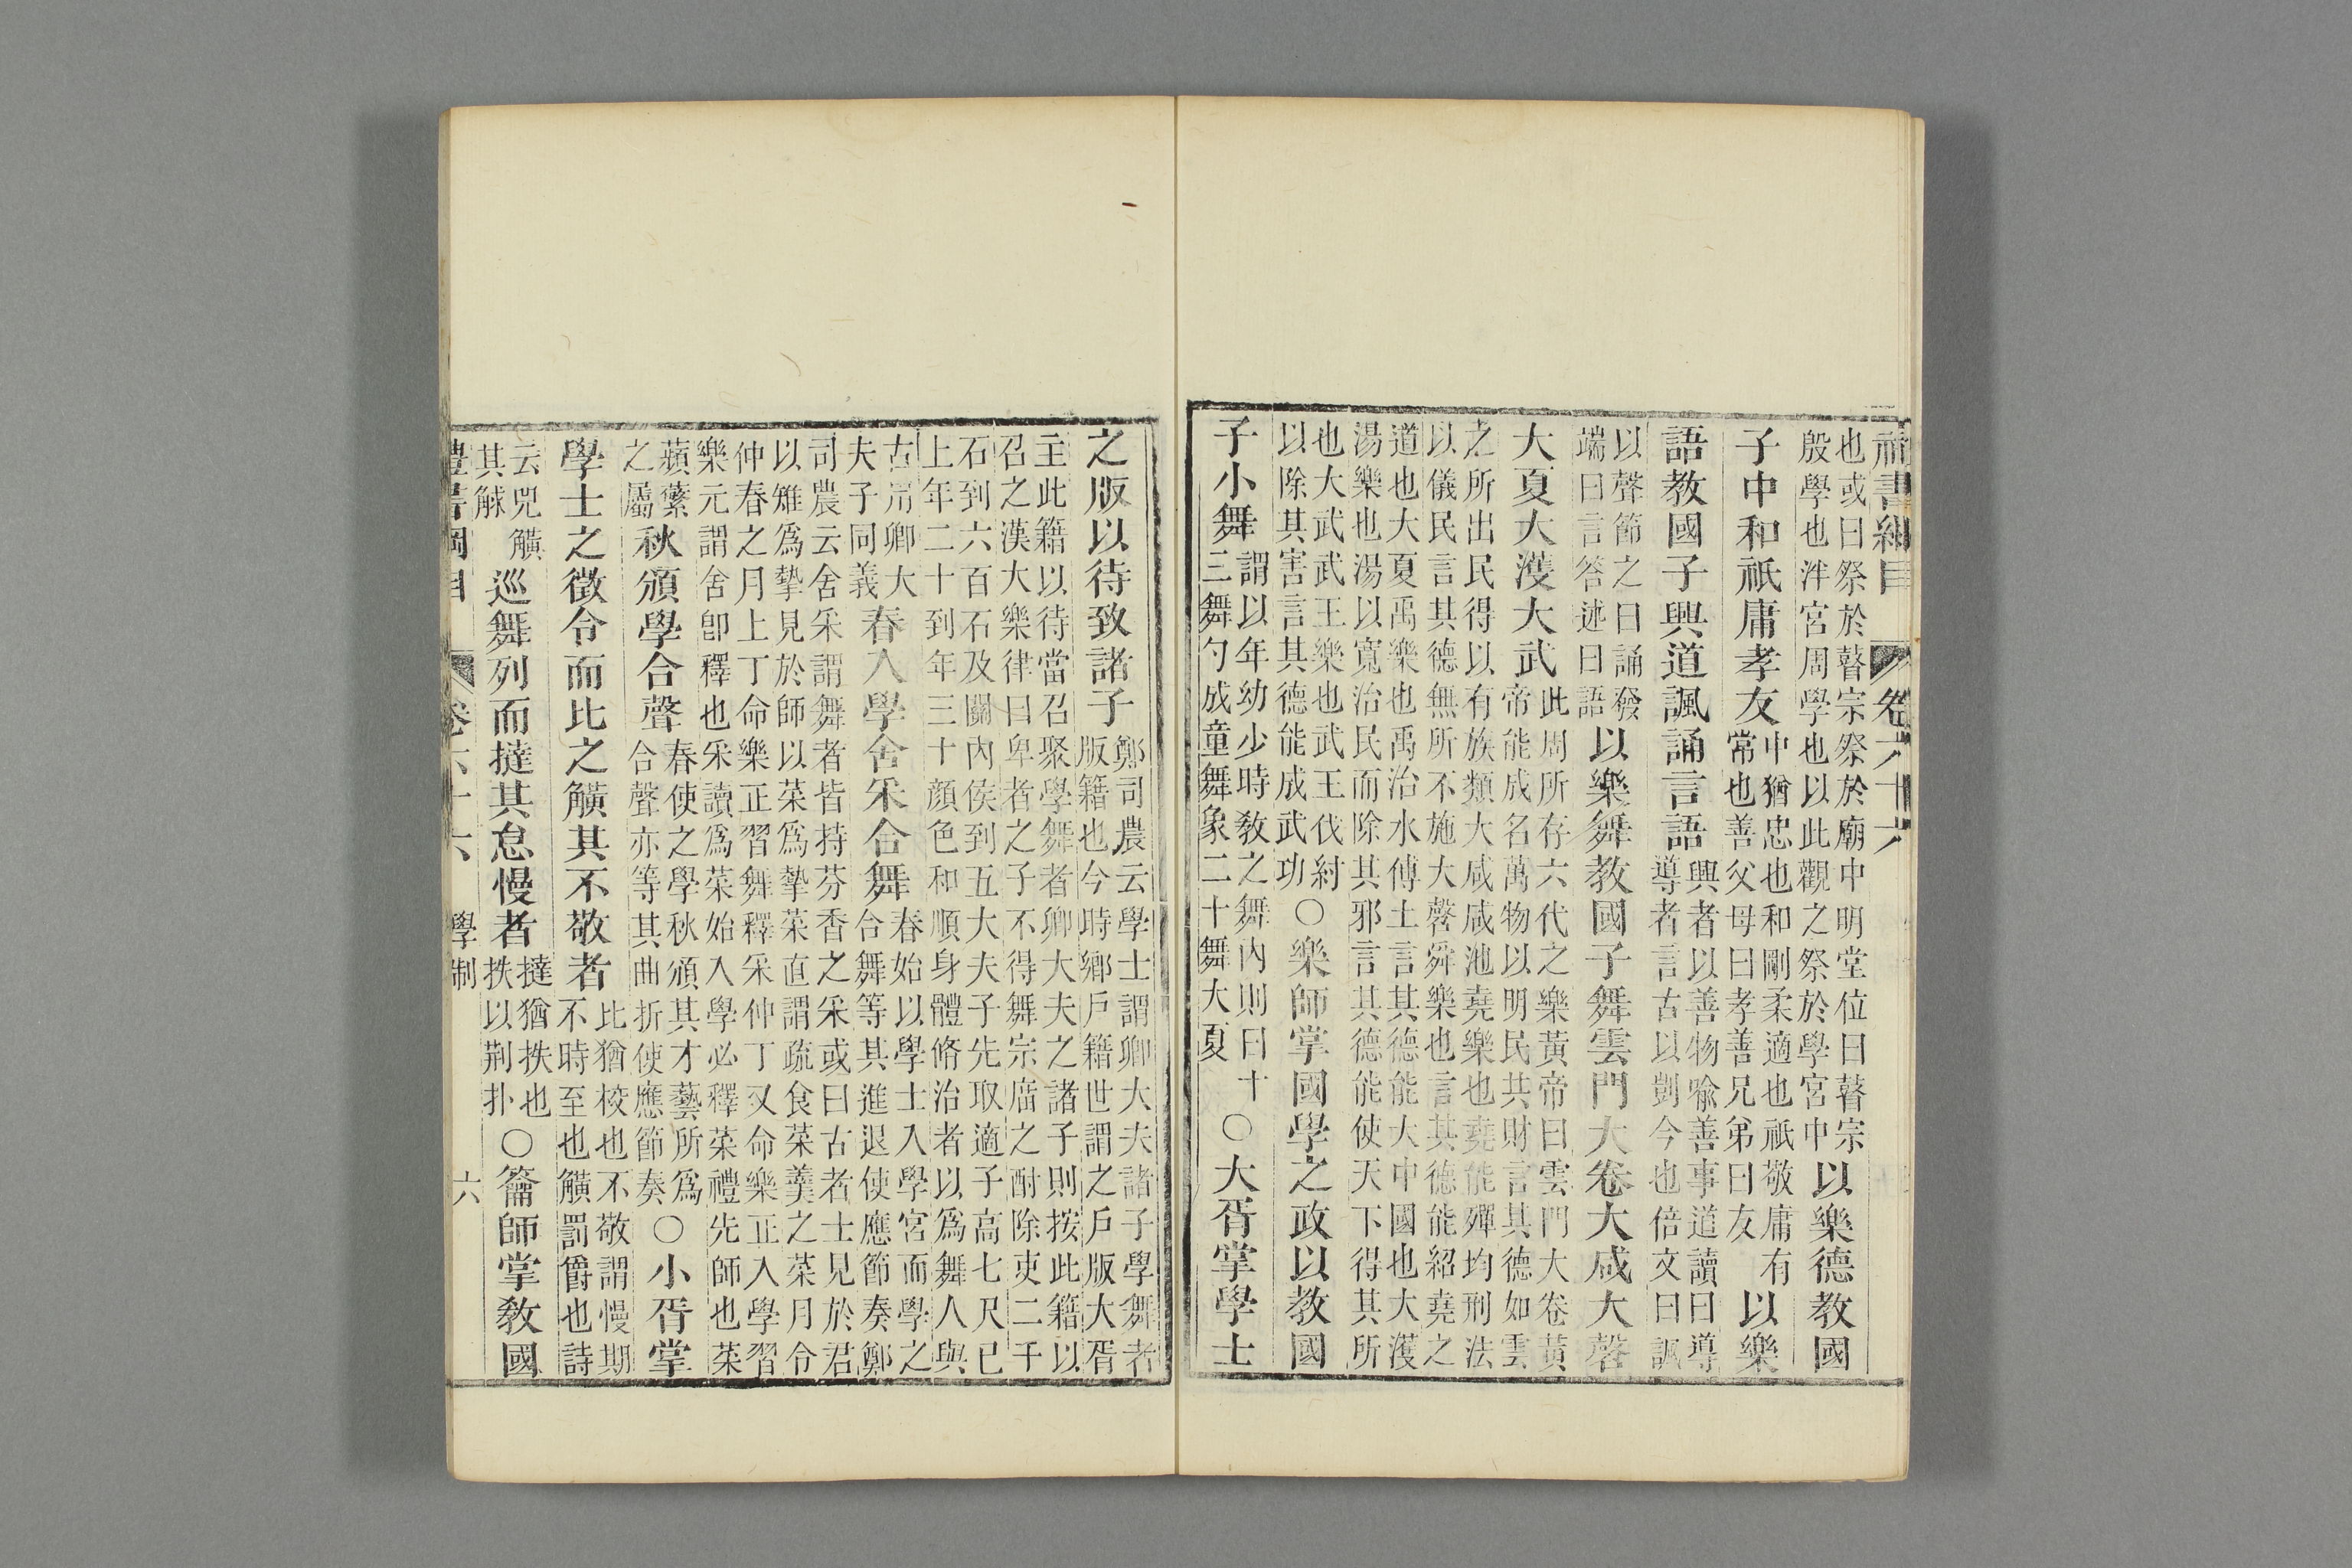 禮書綱目 卷六十六
也或曰祭於瞽宗祭於廟中明堂位曰瞽宗
殷學也泮宮周學也以此觀之祭於學宮中
以樂德教國
子中和祇庸孝友
中猶忠也和剛柔適也祇敬庸有
常也善父母曰孝善兄弟曰友
以樂
語教國子興道諷誦言語
興者以善物喻善事道讀曰導
導者言古以剴今也倍文曰諷
以聲節之曰誦發
端曰言答述曰語
以樂舞教國子舞雲門大卷大咸大磬
大夏大濩大武
此周所存六代之樂黃帝曰雲門大卷黃
帝能成名萬物以明民共財言其德如雲
之所出民得以有族類大咸咸池堯樂也堯能殫均刑法
以儀民言其德無所不施大磬舜樂也言其德能紹堯之
道也大夏禹樂也禹治水傅土言其德能大中國也大濩
湯樂也湯以寬治民而除其邪言其德能使天下得其所
也大武武王樂也武王伐紂
以除其害言其德能成武功
○樂師掌國學之政以教國
子小舞
謂以年幼少時教之舞內則曰十
三舞勺成童舞象二十舞大夏
○大胥掌學士
之版以待致諸子
鄭司農云學士謂卿大夫諸子學舞者
版籍也今時鄉戶籍世謂之戶版大胥
主此籍以待當召聚學舞者卿大夫之諸子則按此籍以
召之漢大樂律曰卑者之子不得舞宗廟之酎除吏二千
石到六百石及關內侯到五大夫子先取適子高七尺已
上年二十到年三十顏色和順身體脩治者以為舞人與
古用卿大
夫子同義
春入學舍采合舞
春始以學士入學宮而學之
合舞等其進退使應節奏鄭
司農云舍采謂舞者皆持芬香之采或曰古者士見於君
以雉爲摯見於師以菜爲摯菜直謂疏食菜羹之菜月令
仲春之月上丁命樂正習舞釋采仲丁又命樂正入學習
樂元謂舍卽釋也采讀爲菜始入學必釋菜禮先師也菜
蘋蘩
之屬
秋頒學合聲
春使之學秋頒其才藝所爲
合聲亦等其曲折使應節奏
○小胥掌
學士之徵令而比之觵其不敬者
比猶校也不敬謂慢期
不時至也觵罰爵也詩
云兕觵
其觩
巡舞列而撻其怠慢者
撻猶抶也
抶以荆扑
○籥師掌教國
禮書綱目 卷六十六 學制 六